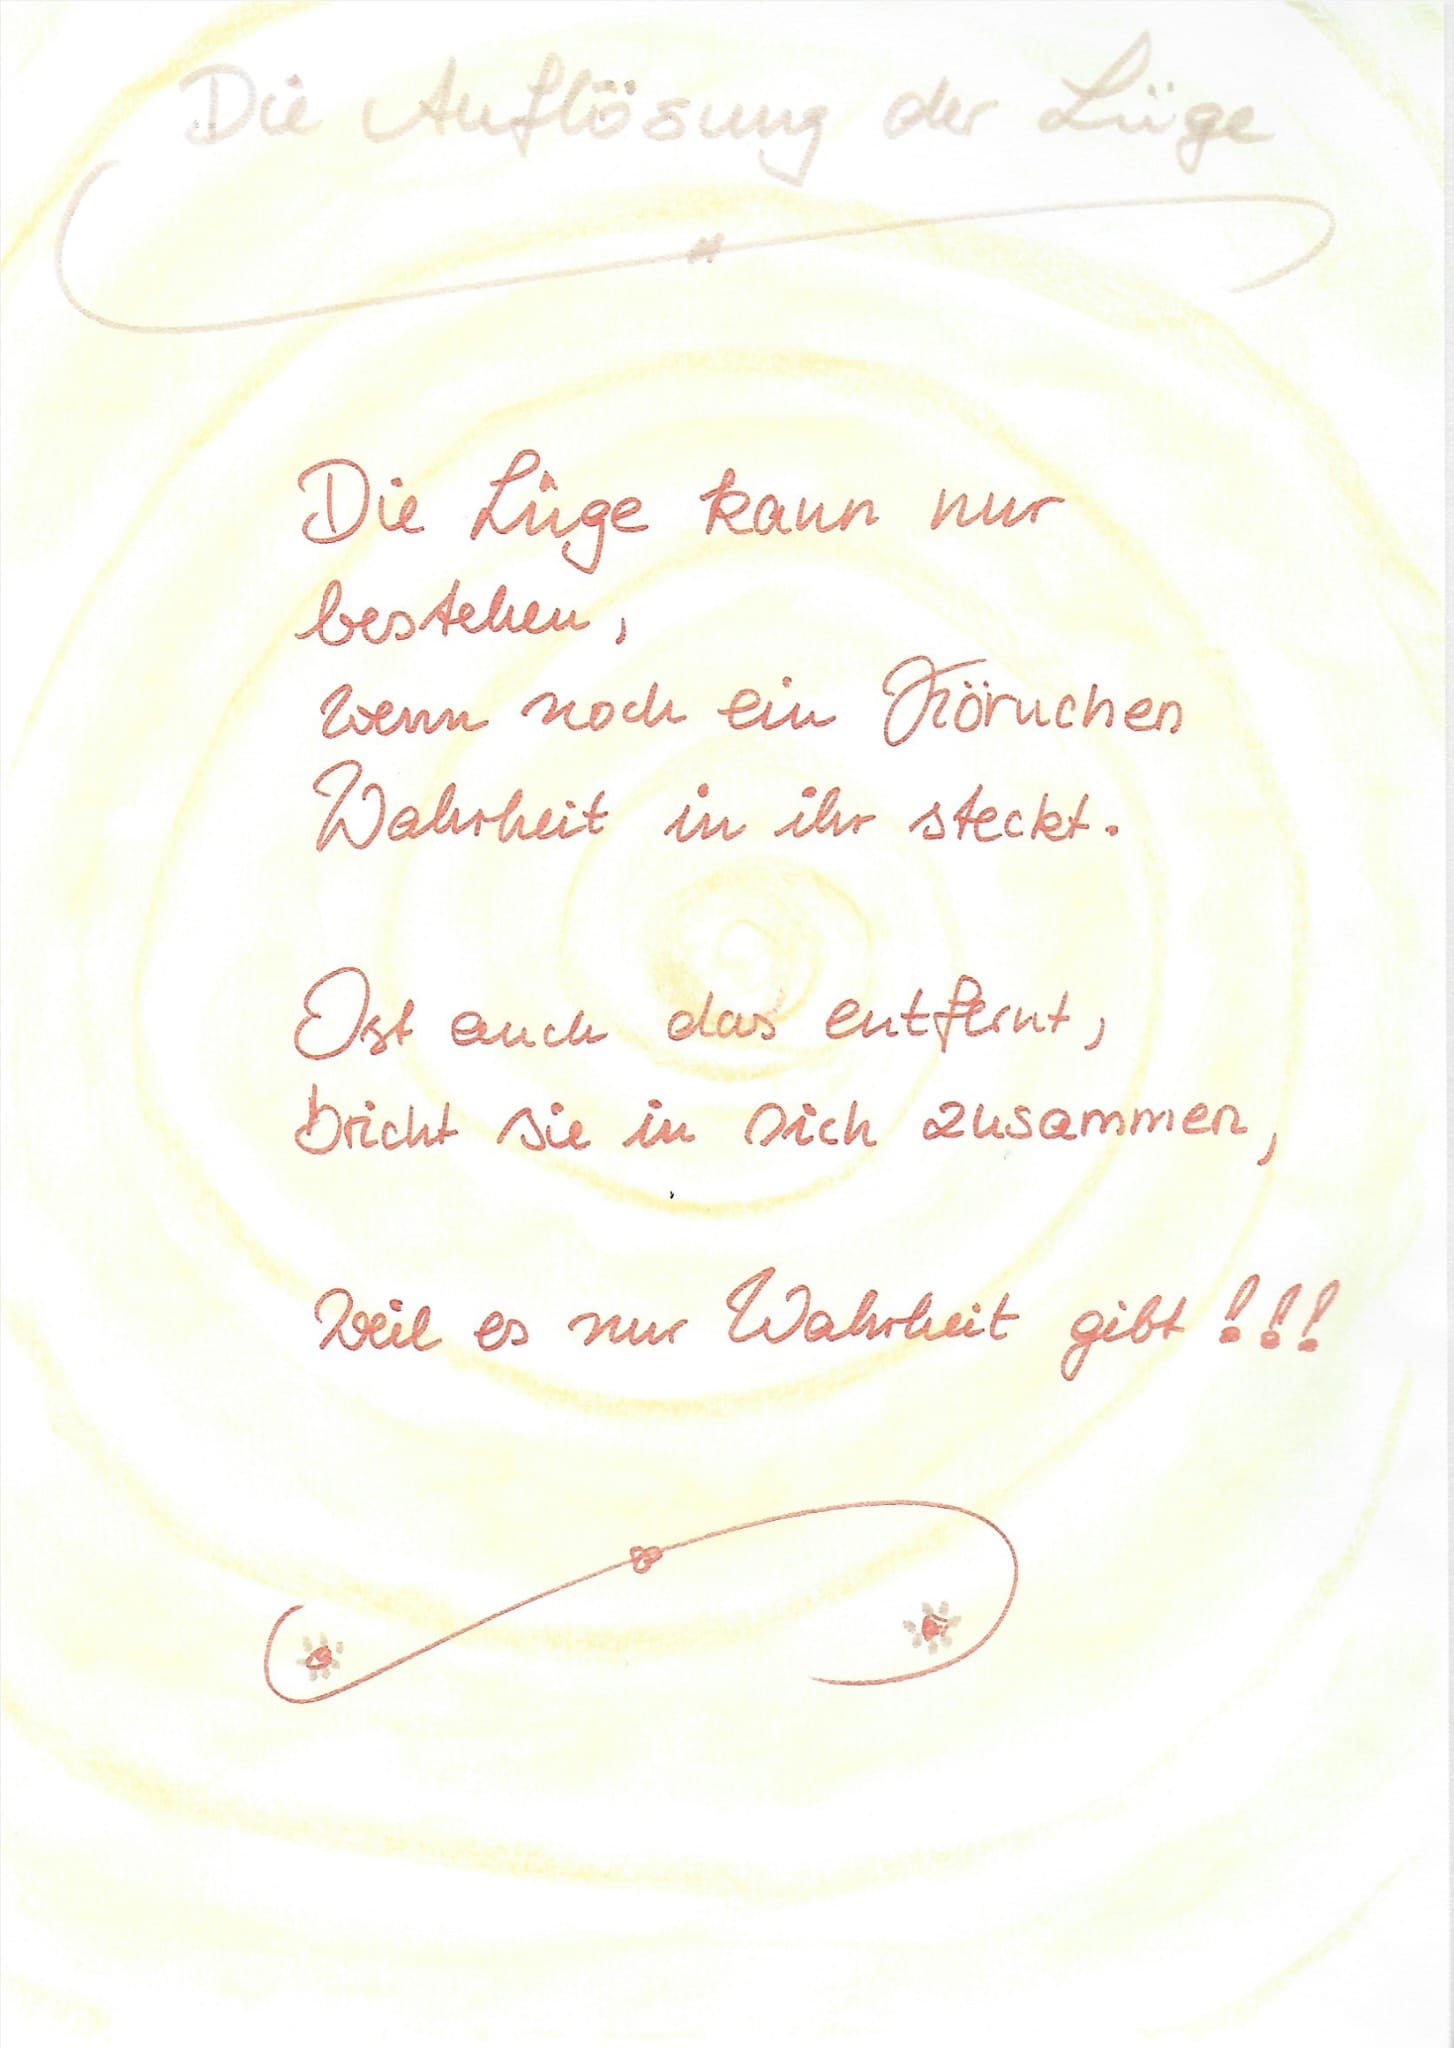 Die Auflösung der Lüge
Die Lüge kann nur
bestehen,
wenn noch ein Körnchen
Wahrheit in ihr steckt.
Ist auch das entfernt,
bricht sie in sich zusammen,
weil es nur Wahrheit gibt!!!